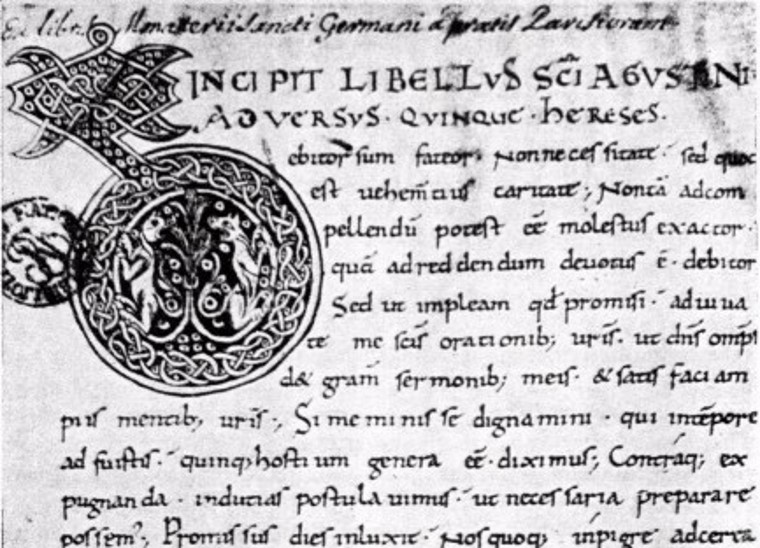 Ex libris Monasterii Sancti Germani à pratis Parisiorum
INCIPIT LIBELLVS SCI AGUSTINI
ADVERSVS · QVINQUE · HERESES ·
Debitor sum fateor · Non necessitate · sed quoc
est uehemtius caritate ; Non tā adcom
pellendū potest eē molestus exactor ·
quā ad reddendum deuotus ē · debitor
Sed ut impleam qd promisi · adiuua
te me scis orationib; uris · ut dns omps
d& gram sermonib; meis · & satis faciam
piis mentib; uris ; Si meminisse dignamini · qui intēpore
adfuistis · quinq; hostium genera eē · diximus ; Contraq; ex
pugnanda · indutias postulauimus · ut necessaria preparare
possem ; Promissus dies inluxit · Nos quoq; inpigre adcerta